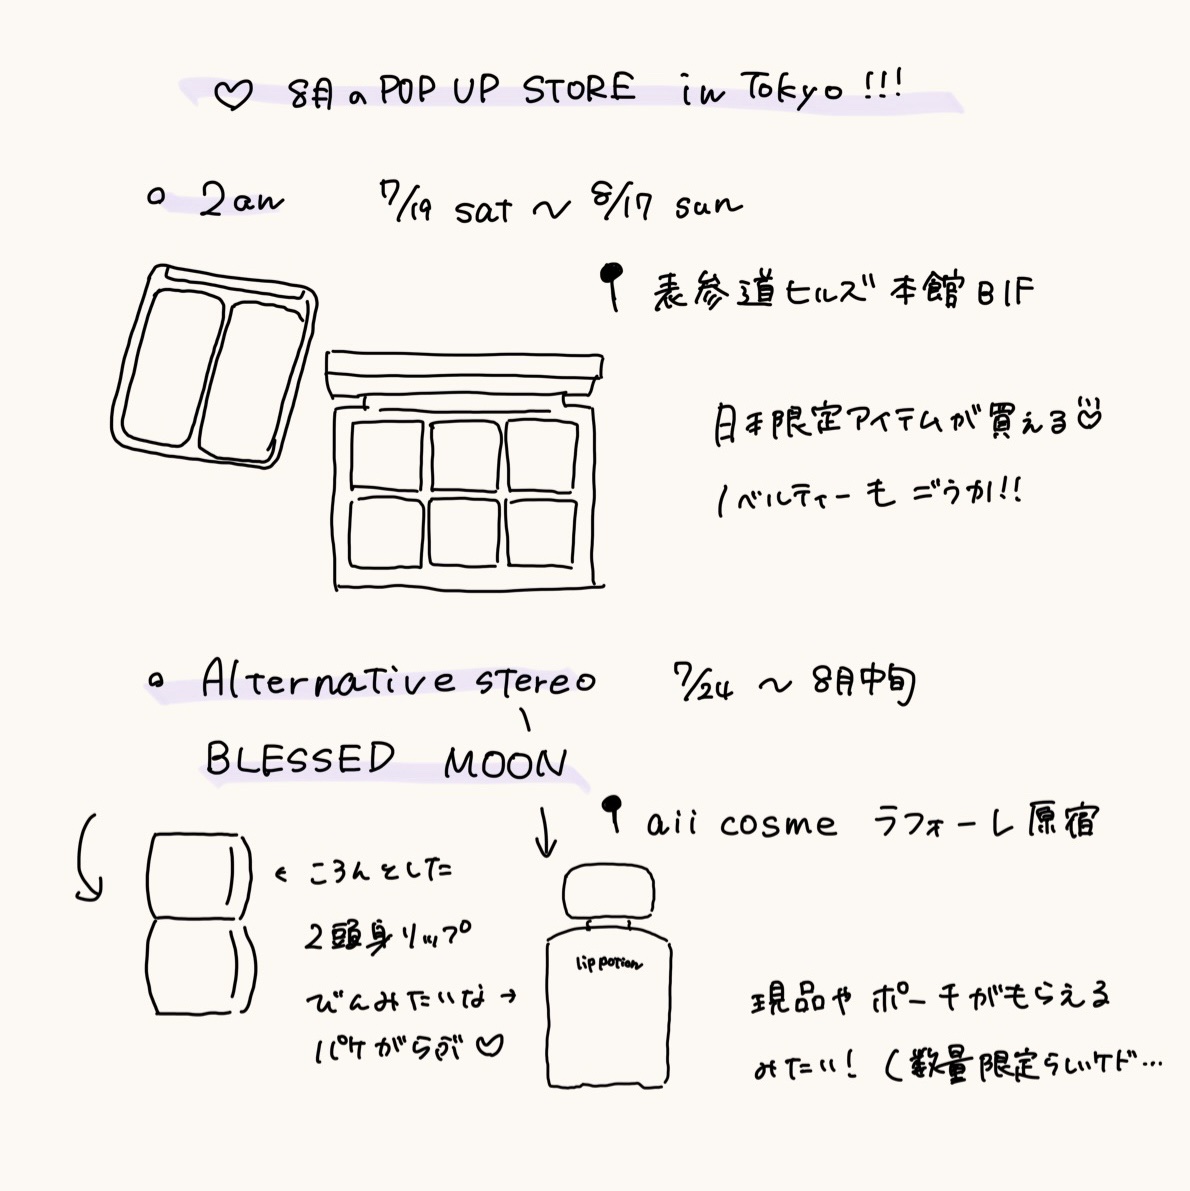 ♡ 8月の POP UP STORE in Tokyo !!!
○ 2an 7/19 sat 〜 8/17 sun
表参道ヒルズ 本館 B1F
日本限定アイテムが買える
ノベルティーも ごうか!!
○ Alternative stereo 7/24 〜 8月中旬
BLESSED MOON
aii cosme ラフォーレ原宿
← ころんとした
2頭身リップ
lip potion
びんみたいな →
パケがらぶ ♡
現品や ポーチがもらえる
みたい! (数量限定らしいケド…